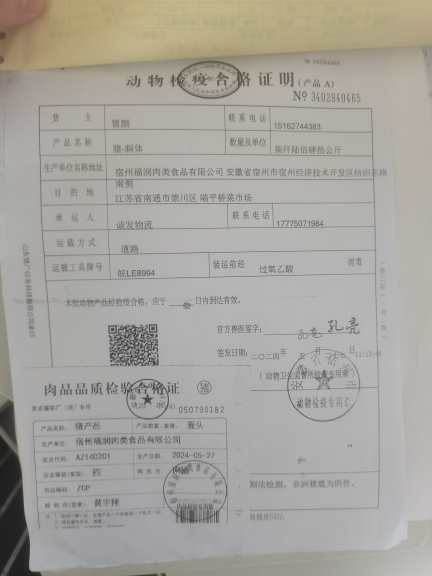 动物检疫合格证明(产品 A)
№ 3402840465
货 主 冒颜 联系电话 15162744383
产品名称 猪-胴体 数量及单位 柒仟陆佰肆拾公斤
生产单位名称地址 宿州福润肉类食品有限公司 安徽省宿州市宿州经济技术开发区纺织东路南侧
目的地 江苏省南通市崇川区 端平桥菜市场
承运人 诚发物流 联系电话 17775071984
运载方式 道路
运载工具牌号 皖LE8994 装运前经 过氧乙酸 消毒
本批动物产品经检疫合格，应于 叁 日内到达有效。
官方兽医签字：
签发日期：二〇二四年 五月
(动物卫生监督所检疫专用章)
动物检疫专用章
肉品品质检验合格证 猪
050790182
产品名称: 猪产品 产品数量(重量): 壹头
生产单位: 宿州福润肉类食品有限公司
定点代码: AZ140201 生产日期: 2024-05-27
企业等级(星级): 四
商品编码: ZCP
黄宇翔
附法检测，非洲猪瘟为阴性。